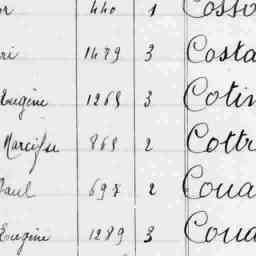 440 1
1489 3 Costa
Eugène 1265 3 Cotin
Narcisse 865 2 Cottr
Paul 697 2 Coua
Eugène 1289 3 Coua